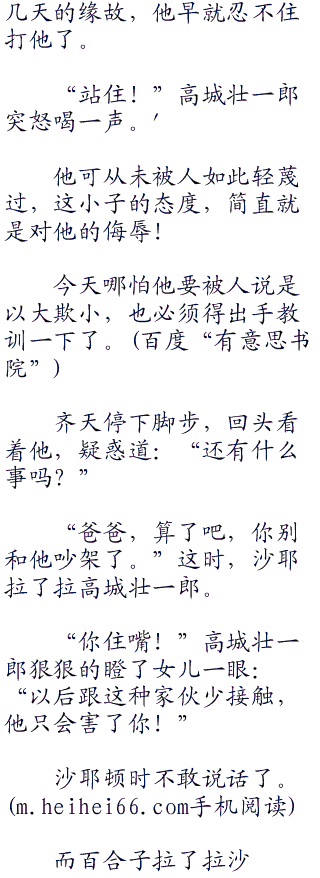 几天的缘故，他早就忍不住
打他了。
“站住！”高城壮一郎
突怒喝一声。′
他可从未被人如此轻蔑
过，这小子的态度，简直就
是对他的侮辱！
今天哪怕他要被人说是
以大欺小，也必须得出手教
训一下了。(百度“有意思书
院”)
齐天停下脚步，回头看
着他，疑惑道：“还有什么
事吗？”
“爸爸，算了吧，你别
和他吵架了。”这时，沙耶
拉了拉高城壮一郎。
“你住嘴！”高城壮一
郎狠狠的瞪了女儿一眼：
“以后跟这种家伙少接触，
他只会害了你！”
沙耶顿时不敢说话了。
(m.heihei66.com手机阅读)
而百合子拉了拉沙